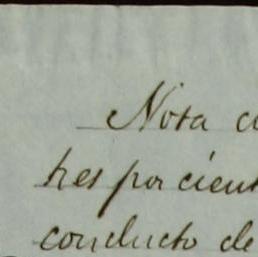 Nota c
tres por cient
conducto de